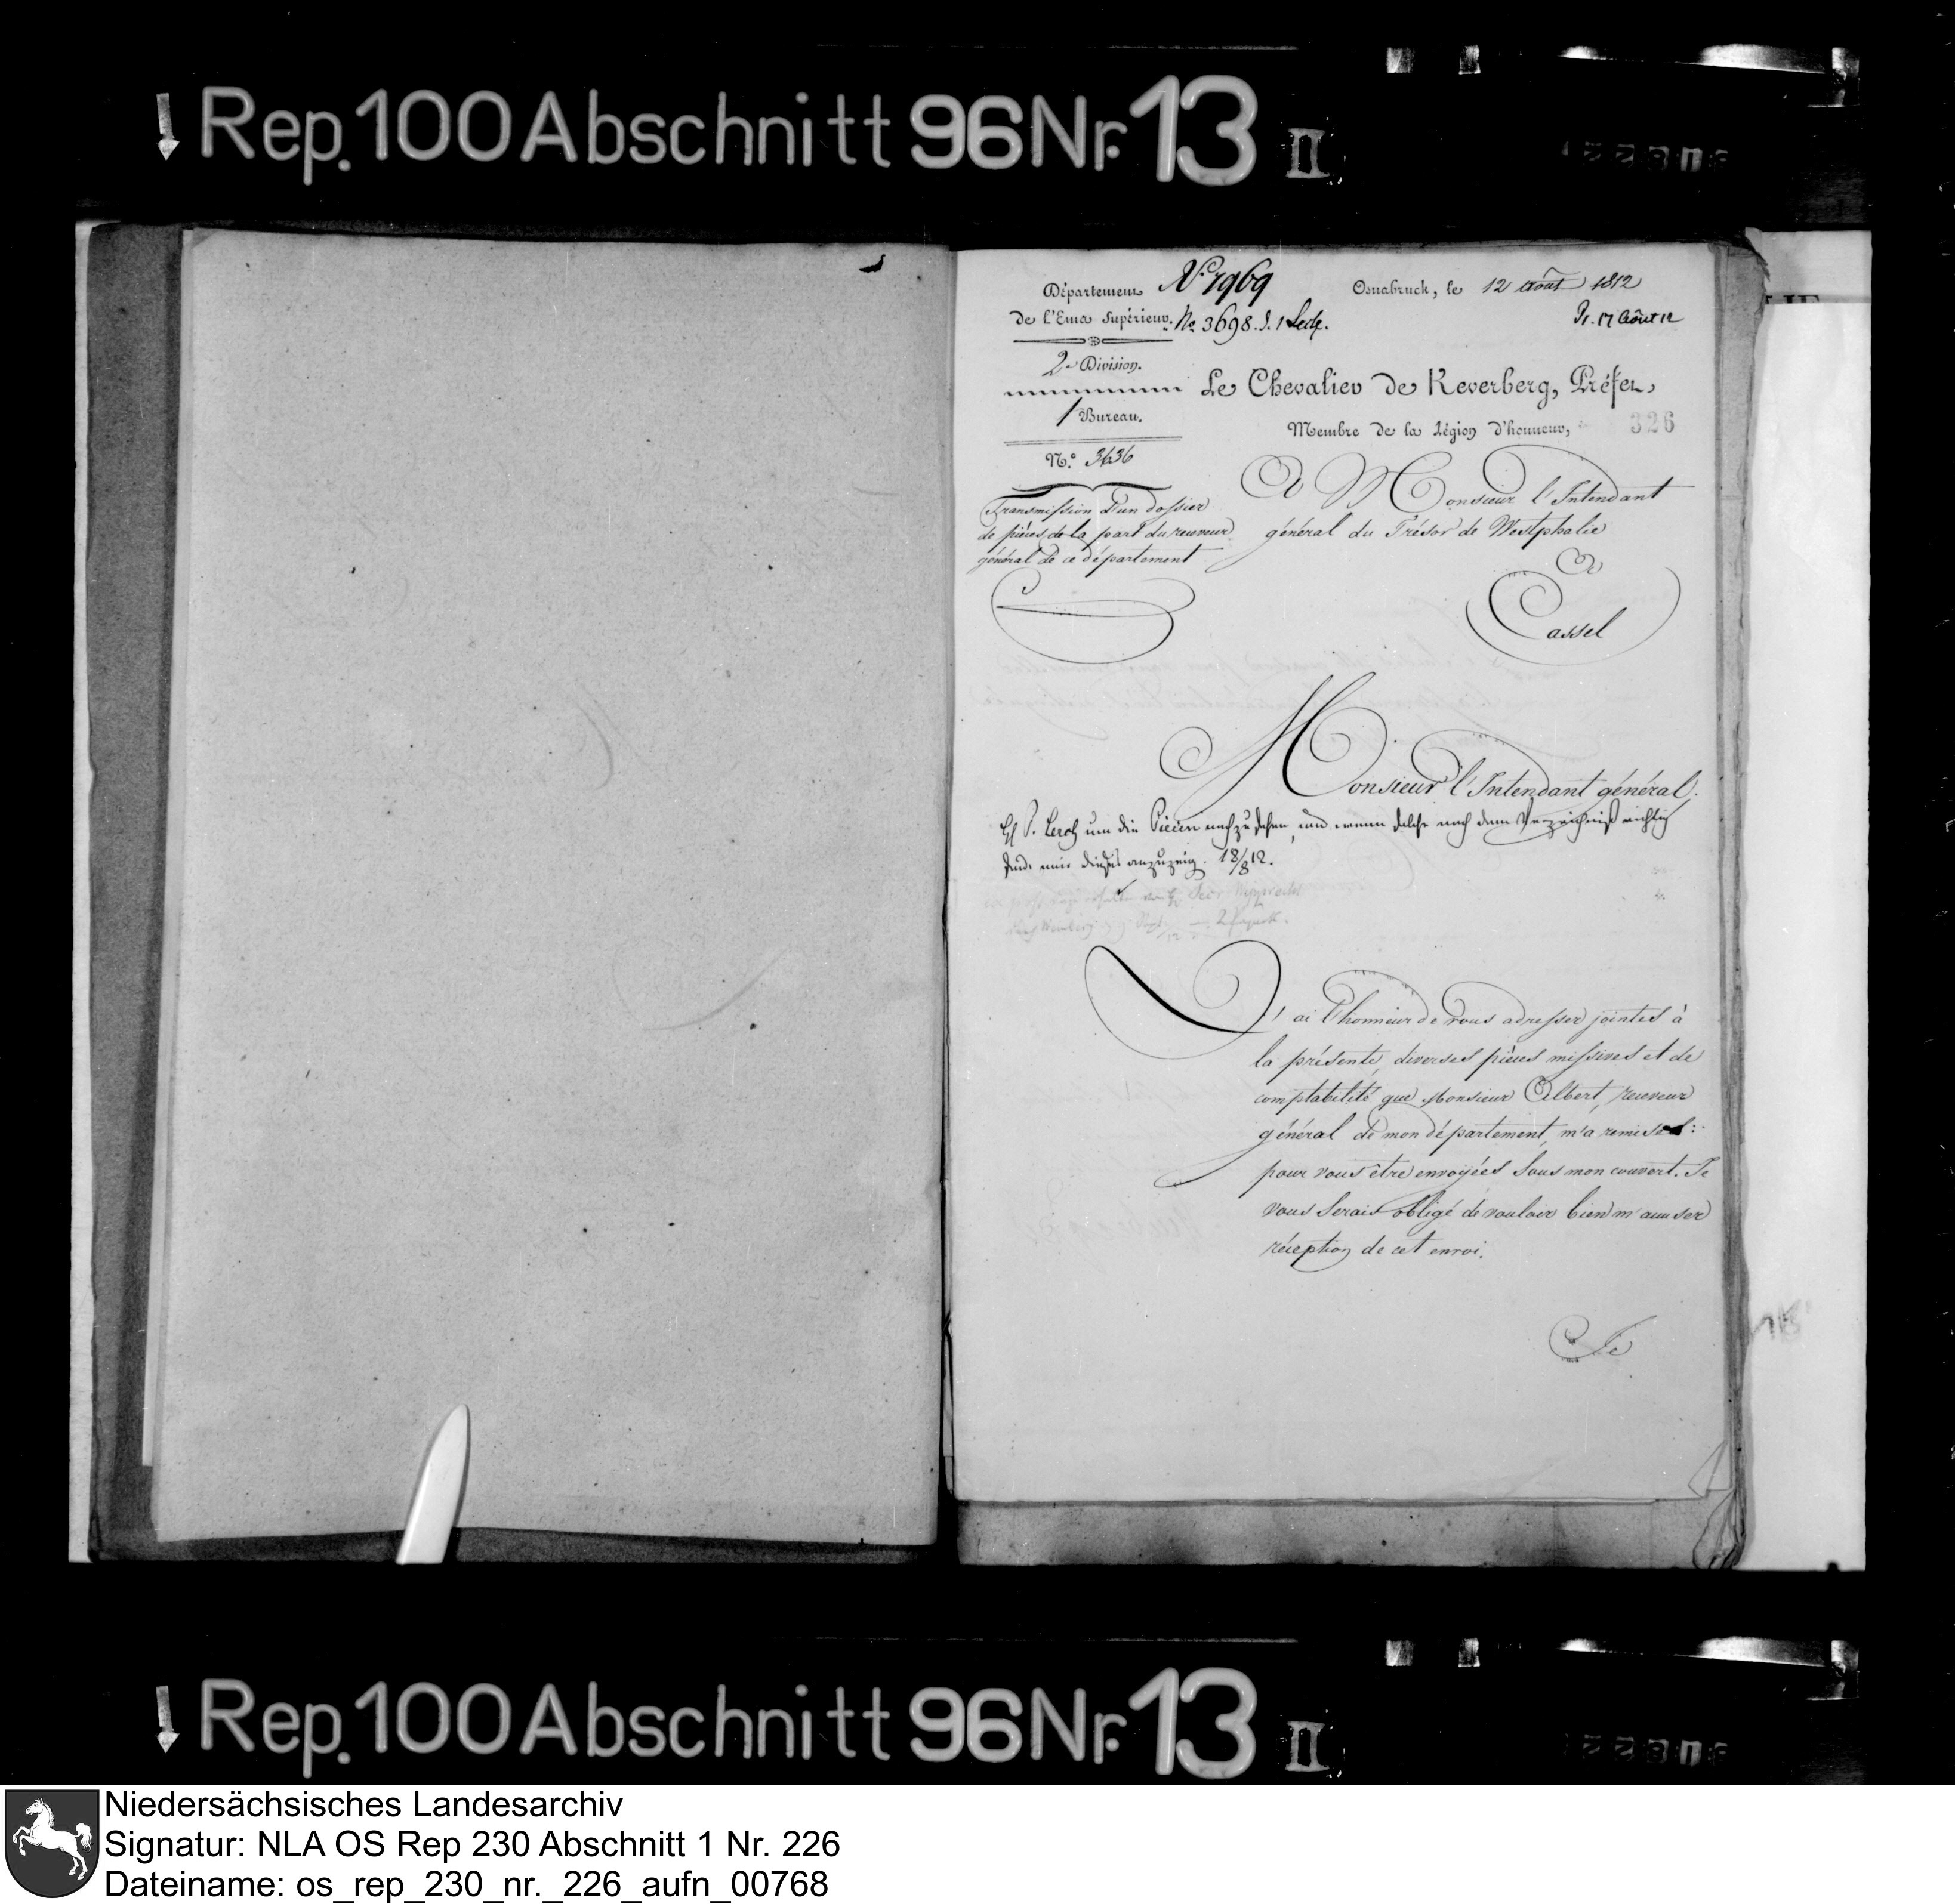 Rep. 100 Abschnitt 96 Nr. 13 II
Département
de l'Ems Supérieur.
2e Division.
1 Bureau.
N.° 3636
Transmission d'un dossier
de pièces de la part du receveur
général de ce département
N° 7969
No 3698. J. 1 Sech.
Osnabruck, le 12 août 1812
Pr. 17 Août 12
Le Chevalier de Keverberg, Préfet,
Membre de la Légion d'honneur,
326
A Monsieur l'Intendant
général du Trésor de Westphalie
A
Cassel
Monsieur l'Intendant général.
um die Piecen nachzusehen, und wenn solche nach dem Verzeichniß richtig
sind mir dieses anzuzeig. 18/8 12.
J'ai l'honneur de vous adresser jointes à
la présente, diverses pièces missives et de
comptabilité que Monsieur Albert, receveur
général de mon département, m'a remises
pour vous être envoyées sous mon couvert. Je
vous serais obligé de vouloir bien m'accuser
réception de cet envoi.
Je
Rep. 100 Abschnitt 96 Nr. 13 II
Niedersächsisches Landesarchiv
Signatur: NLA OS Rep 230 Abschnitt 1 Nr. 226
Dateiname: os_rep_230_nr._226_aufn_00768